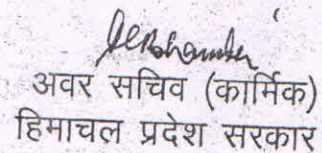 अवर सचिव (कार्मिक)
हिमाचल प्रदेश सरकार